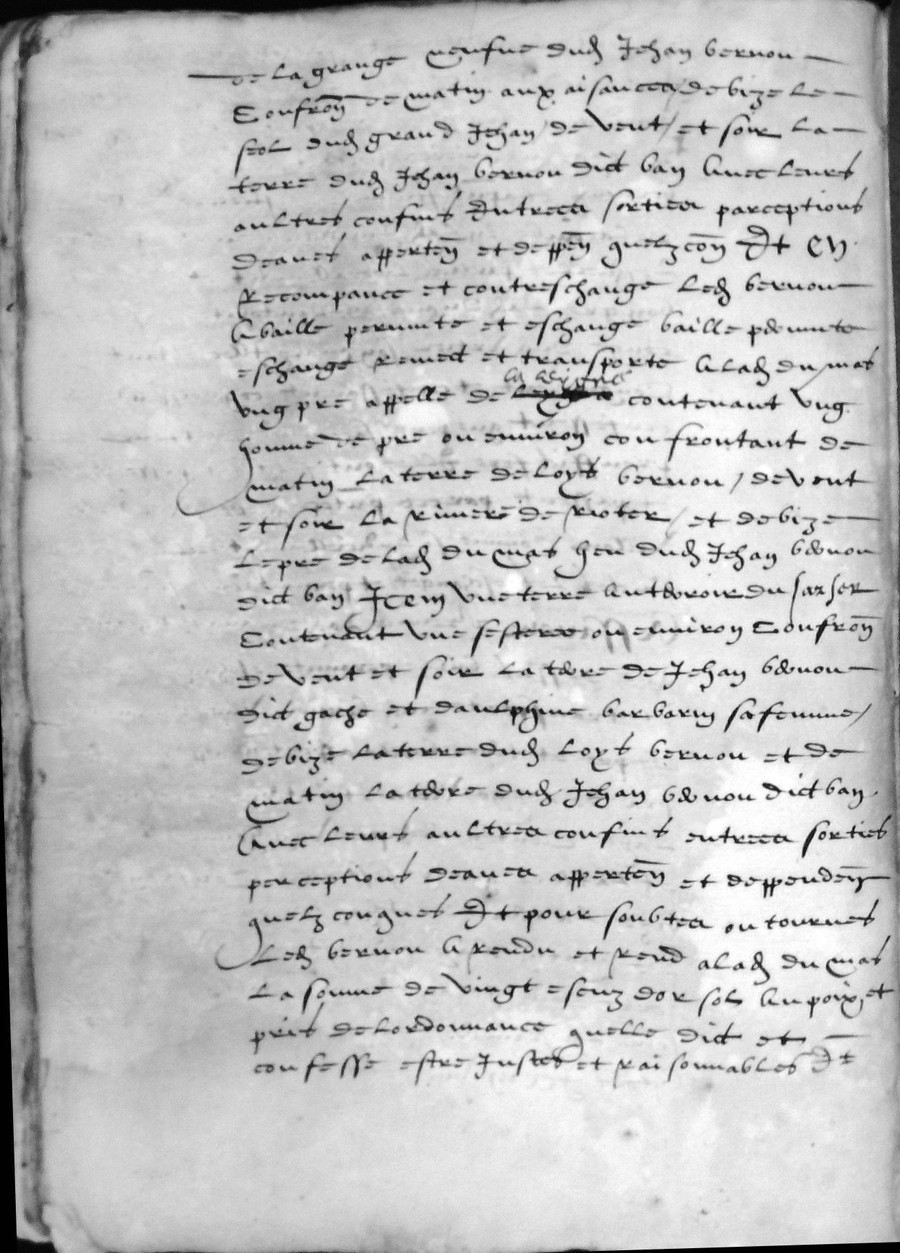 de la grange neufve dud Jehan vernou
Confron de matin aux aisances de bize le
seol dud grand Jehan de vent et soir la
terre dud Jehan vernou dict ban avec leurs
aultres confins Entrees sorties parceptions
deaues apperten et deppen quelzcon Et en
Recompance et contreschange led vernou
A baille permute et eschange baille permute
eschange Remect et transporte a lad du mas
ung pre appelle de la contenant ung
homme de pre ou environ confrontant de
matin la terre de loys vernou / de vent
et soir la riviere de rioter / et de bize
le pre de lad du mas heu dud Jehan vernou
dict ban Jtem une terre au terroir du
Contenant une sesteree ou environ Confron
de vent et soir la terre de Jehan vernou
dict gache et daulphine barbarin sa femme /
de bize la terre dud loys vernou et de
matin la terre dud Jehan vernou dict ban
Avec leurs aultres confins entrees sorties
perceptions deaues apperten et deppenden
quelzconques Et pour soubtes ou tournes
Led vernou A rendu et rend a lad du mas
La somme de vingt escuz dor sol Au poix et
pris de lordonnance quelle dict et
confesse estre Justes et raisonnables Et